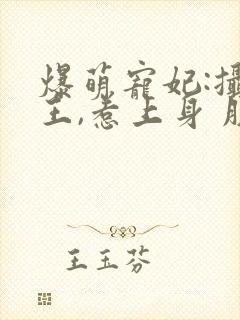 爆萌寵妃:攝
王,惹上身
王玉芬